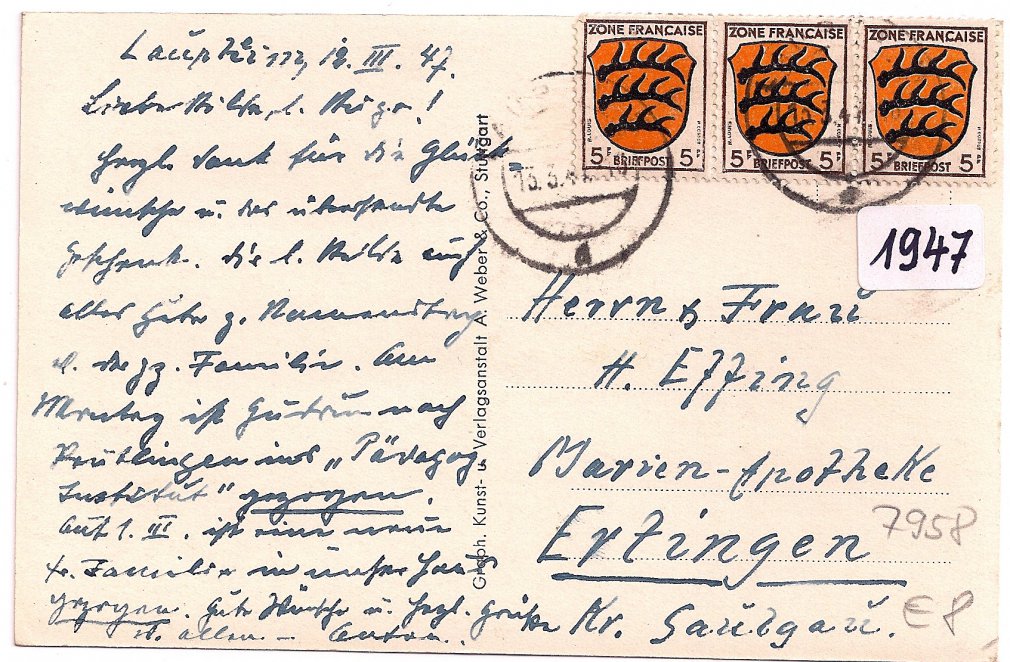 Laupheim, 12. III. 47.
Liebe Hilde, l. Hugo!
Herzl. Dank für die Glück-
wünsche u. das übersandte
Geschenk. Die l. Hilde auch
alles Gute z. Namenstag
d. Familie. Am
Montag ist Gudrun nach
Reutlingen ins „Pädagog.
Institut" gezogen.
Auf 1. III. ist eine neue
Familie in unser Haus
gezogen. Gute Wünsche u. herzl. Grüße
allen – Anton.
Graph. Kunst- u. Verlagsanstalt A. Weber & Co., Stuttgart
ZONE FRANÇAISE
5 F BRIEFPOST 5 F
ZONE FRANÇAISE
5 F BRIEFPOST 5 F
ZONE FRANÇAISE
5 F BRIEFPOST 5 F
13.3.47
d
1947
Herrn & Frau
H. Effing
Marien-Apotheke
Ertingen
7958
Kr. Saulgau.
E8